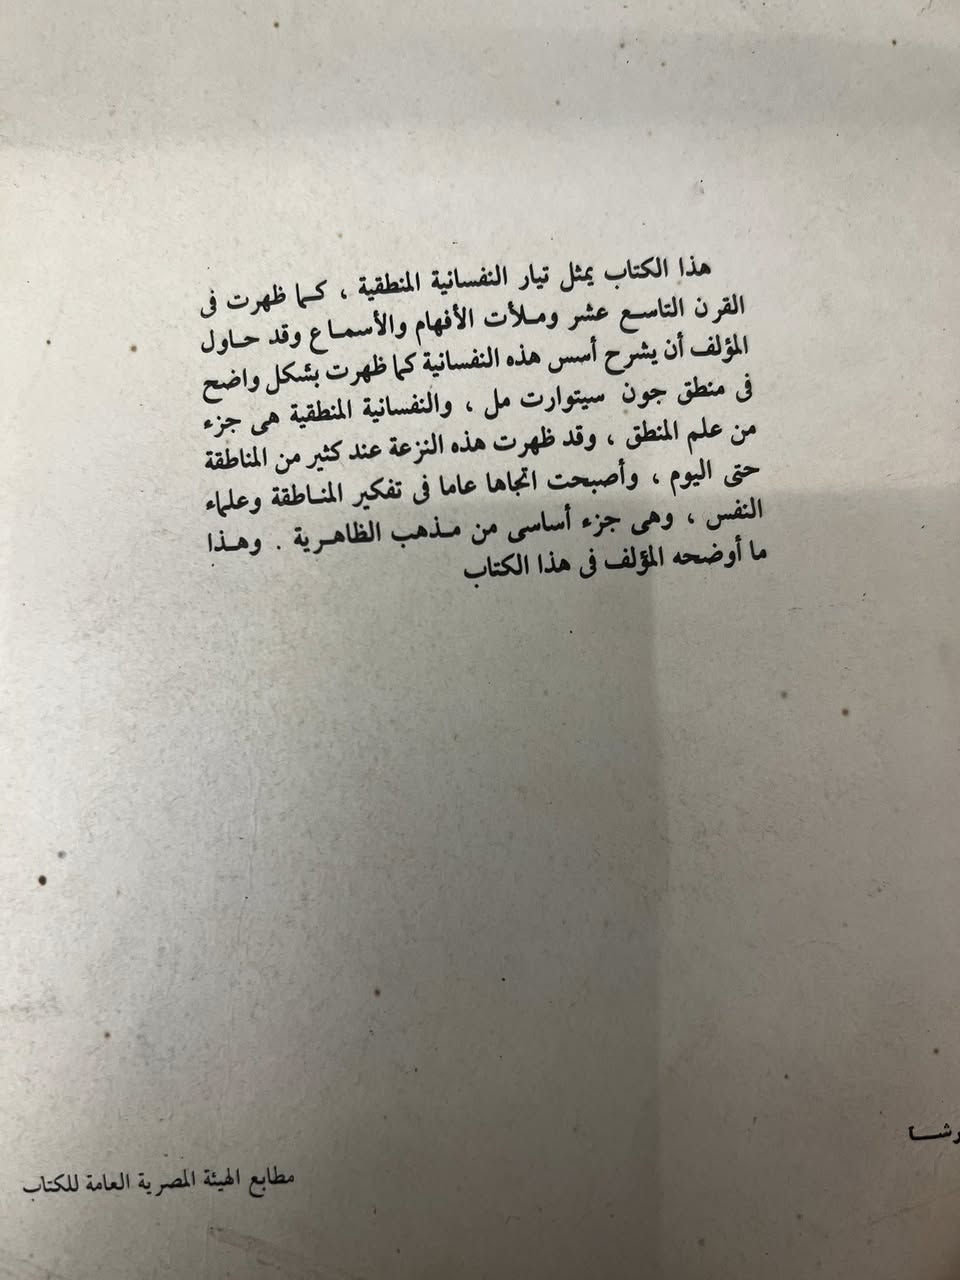 هذا الكتاب يمثل تيار النفسانية المنطقية ، كما ظهرت فى
القرن التاسع عشر وملأت الأفهام والأسماع وقد حاول
المؤلف أن يشرح أسس هذه النفسانية كما ظهرت بشكل واضح
فى منطق جون سيتوارت مل ، والنفسانية المنطقية هى جزء
من علم المنطق ، وقد ظهرت هذه النزعة عند كثير من المناطقة
حتى اليوم ، وأصبحت اتجاها عاما فى تفكير المناطقة وعلماء
النفس ، وهى جزء أساسى من مذهب الظاهرية . وهذا
ما أوضحه المؤلف فى هذا الكتاب
مطابع الهيئة المصرية العامة للكتاب